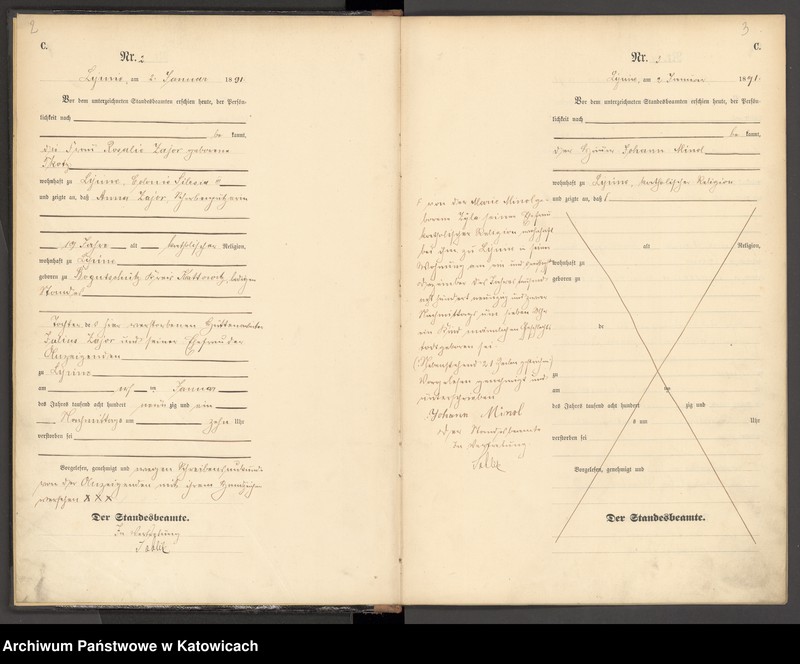 2
C.
Nr. 2
am 2. Januar 1891.
Vor dem unterzeichneten Standesbeamten erschien heute, der Persön-
lichkeit nach
be kannt,
die Frau Rosalie Zajor geborene
wohnhaft zu Colonie Silesia
und zeigte an, daß Anna Zajor
19 Jahre alt katholischer Religion,
wohnhaft zu
geboren zu Bogutschütz, Kreis Kattowitz, ledigen
Standes
Tochter des hier verstorbenen Hüttenarbeiter
Julius Zajor und seiner Ehefrau der
Anzeigenden
zu
am Januar
des Jahres tausend acht hundert neunzig und ein
Nachmittags um zehn Uhr
verstorben sei
Vorgelesen, genehmigt und wegen
von der Anzeigenden mit ihrem Handzeichen
versehen XXX
Der Standesbeamte.
In Vertretung
3
C.
Nr. 3
am 2. Januar 1891.
Vor dem unterzeichneten Standesbeamten erschien heute, der Persön-
lichkeit nach
be kannt,
der Johann Minol
wohnhaft zu katholischer Religion
und zeigte an, daß
von der Marie Minol ge-
borene seiner Ehefrau
katholischer Religion wohnhaft
bei ihm zu in seiner
Wohnung am ein und
Dezember des Jahres tausend
acht hundert neunzig und zwar
Nachmittags um sieben Uhr
ein Kind männlichen Geschlechts
todtgeboren sei
(Vorstehend 21 Zeilen gestrichen)
Vorgelesen genehmigt und
unterschrieben
Johann Minol
Der Standesbeamte
In Vertretung
alt Religion,
wohnhaft zu
geboren zu
de
zu
am
des Jahres tausend acht hundert zig und
s um Uhr
verstorben sei
Vorgelesen, genehmigt und
Der Standesbeamte.
Archiwum Państwowe w Katowicach